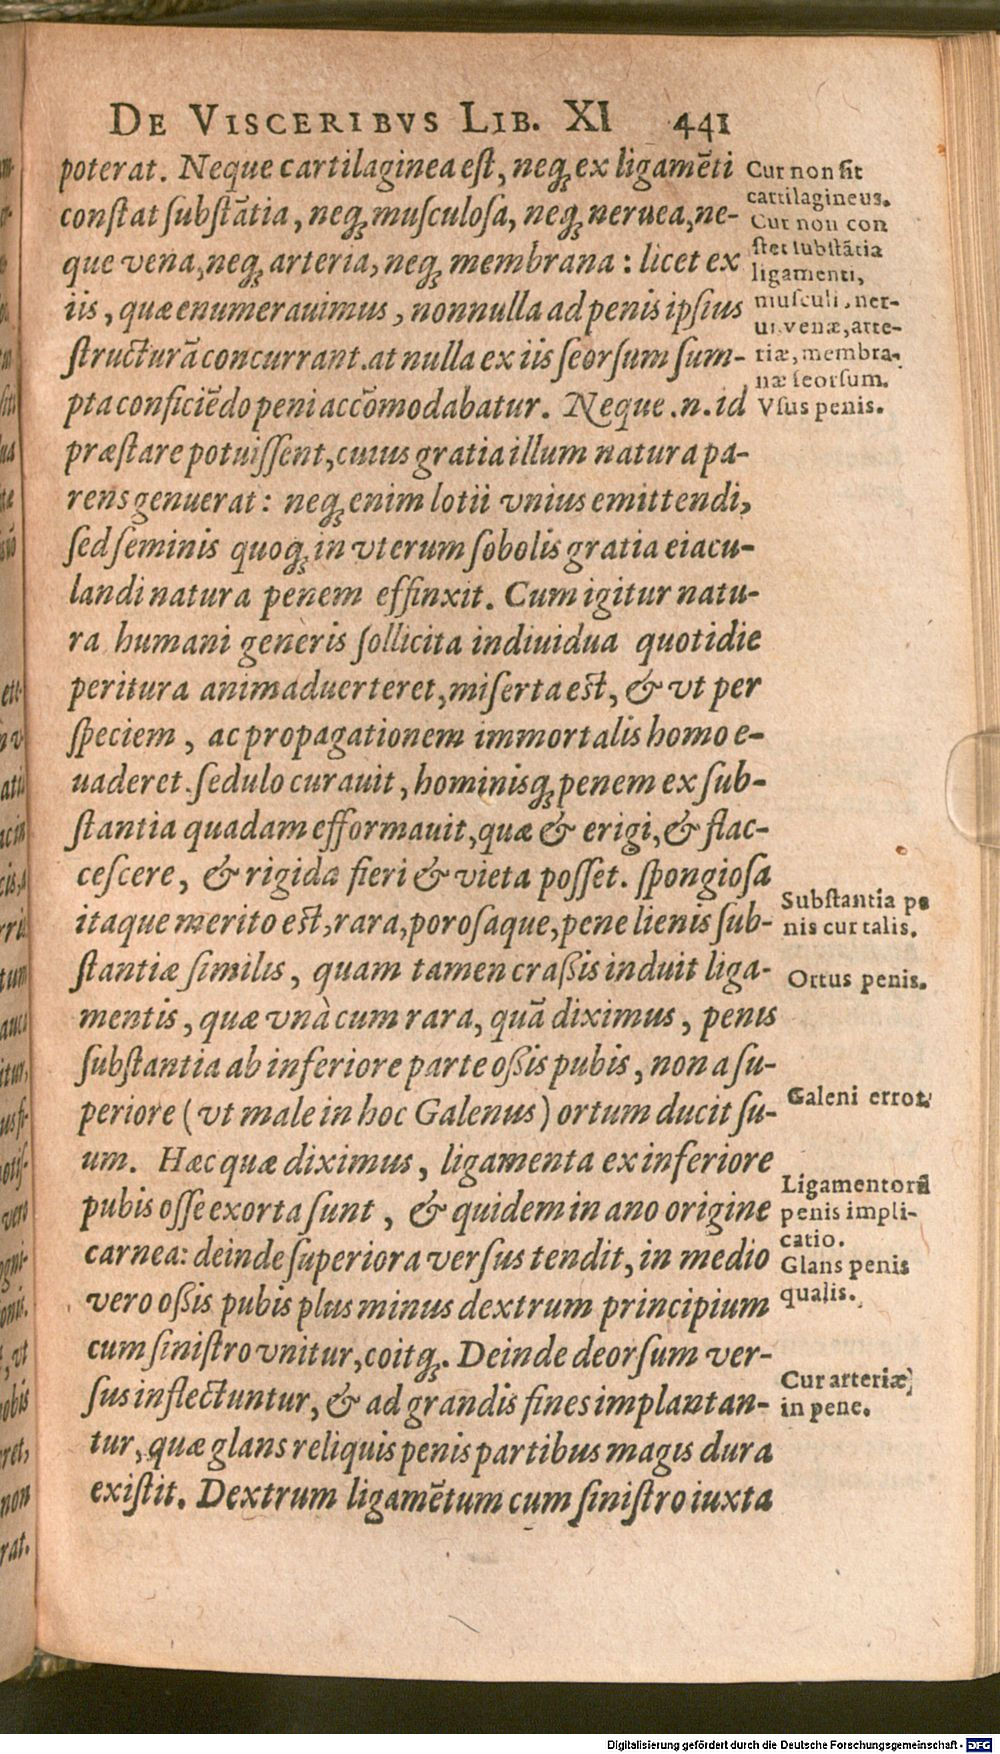 DE VISCERIBVS LIB. XI 441
poterat. Neque cartilaginea est, neq; ex ligamēti
constat substātia, neq; musculosa, neq; neruea, ne-
que vena, neq; arteria, neq; membrana: licet ex
iis, quæ enumerauimus, nonnulla ad penis ipsius
structurā concurrant. at nulla ex iis seorsum sum-
pta conficiēdo peni accōmodabatur. Neque .n. id
præstare potuissent, cuius gratia illum natura pa-
rens genuerat: neq; enim lotii vnius emittendi,
sed seminis quoq; in vterum sobolis gratia eiacu-
landi natura penem effinxit. Cum igitur natu-
ra humani generis sollicita indiuidua quotidie
peritura animaduerteret, miserta est, & vt per
speciem, ac propagationem immortalis homo e-
uaderet. sedulo curauit, hominisq; penem ex sub-
stantia quadam efformauit, quæ & erigi, & flac-
cescere, & rigida fieri & vieta posset. spongiosa
itaque merito est, rara, porosaque, pene lienis sub-
stantiæ similis, quam tamen craßis induit liga-
mentis, quæ vnà cum rara, quā diximus, penis
substantia ab inferiore parte oßis pubis, non a su-
periore (vt male in hoc Galenus) ortum ducit su-
um. Hæc quæ diximus, ligamenta ex inferiore
pubis osse exorta sunt, & quidem in ano origine
carnea: deinde superiora versus tendit, in medio
vero oßis pubis plus minus dextrum principium
cum sinistro vnitur, coitq;. Deinde deorsum ver-
sus inflectuntur, & ad grandis fines implantan-
tur, quæ glans reliquis penis partibus magis dura
existit. Dextrum ligamētum cum sinistro iuxta
Cur non sit
cartilagineus.
Cur non con
stet substātia
ligamenti,
musculi, ner-
ui venæ, arte-
riæ, membra-
næ seorsum.
Vsus penis.
Substantia pe
nis cur talis.
Ortus penis.
Galeni error.
Ligamentorū
penis impli-
catio.
Glans penis
qualis.
Cur arteriæ
in pene.
Digitalisierung gefördert durch die Deutsche Forschungsgemeinschaft - DFG